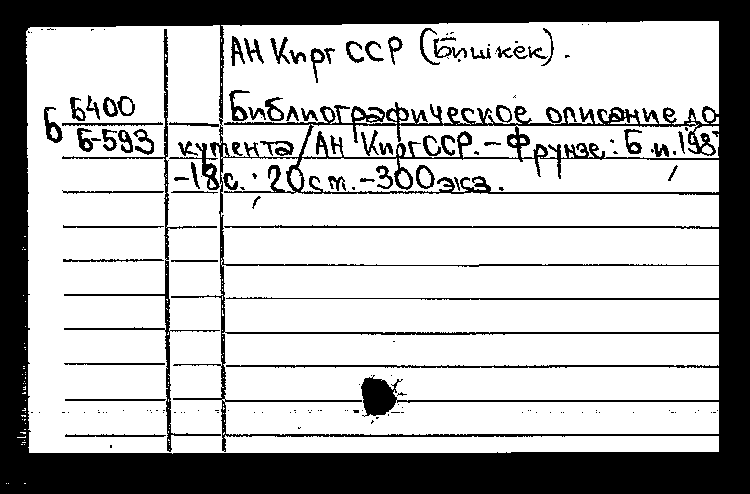 АН Кирг ССР (Бишкек).
Б Б400 Библиографическое описание до-
Б-593 кумента / АН Кирг ССР. - Фрунзе: Б. и. 198
-18 с.; 20 см. -300 экз.